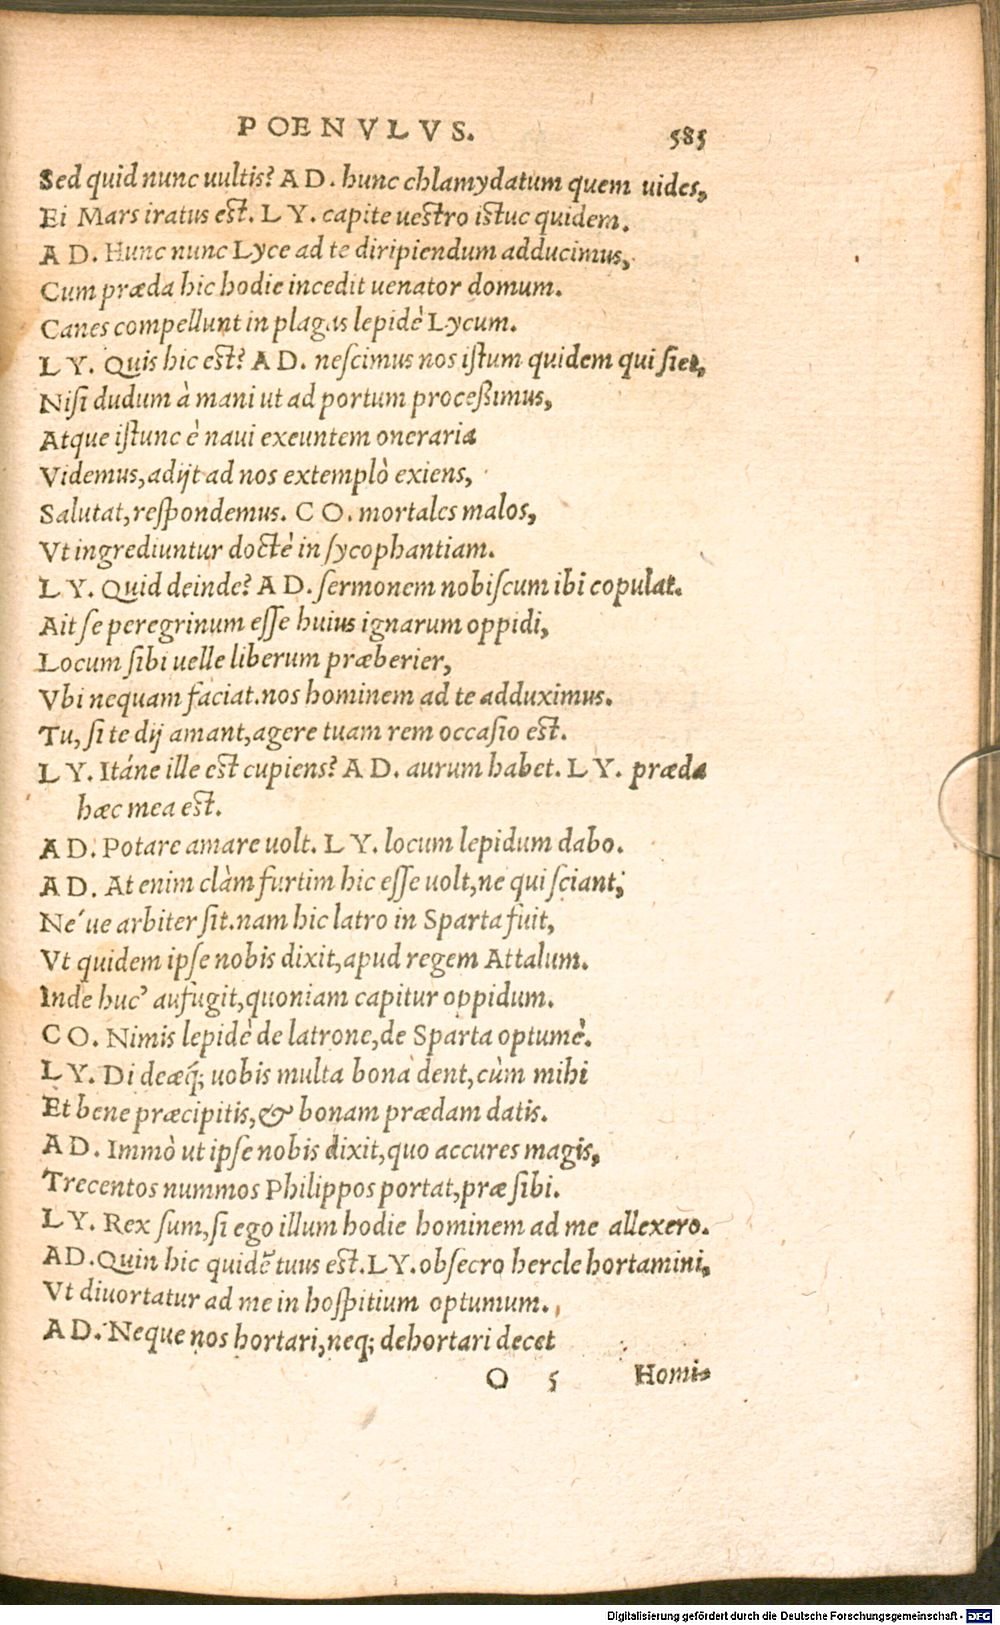 POENVLVS. 585
Sed quid nunc uultis? AD. hunc chlamydatum quem uides,
Ei Mars iratus est. LY. capite uestro istuc quidem.
AD. Hunc nunc Lyce ad te diripiendum adducimus,
Cum præda hic hodie incedit uenator domum.
Canes compellunt in plagas lepidè Lycum.
LY. Quis hic est? AD. nescimus nos istum quidem qui siet,
Nisi dudum à mani ut ad portum processimus,
Atque istunc è naui exeuntem oneraria
Videmus, adijt ad nos extemplò exiens,
Salutat, respondemus. CO. mortales malos,
Vt ingrediuntur doctè in sycophantiam.
LY. Quid deinde? AD. sermonem nobiscum ibi copulat.
Ait se peregrinum esse huius ignarum oppidi,
Locum sibi uelle liberum præberier,
Vbi nequam faciat. nos hominem ad te adduximus.
Tu, si te dij amant, agere tuam rem occasio est.
LY. Itáne ille est cupiens? AD. aurum habet. LY. præda
hæc mea est.
AD. Potare amare uolt. LY. locum lepidum dabo.
AD. At enim clàm furtim hic esse uolt, ne qui sciant,
Né ue arbiter sit. nam hic latro in Sparta fuit,
Vt quidem ipse nobis dixit, apud regem Attalum.
Inde huc' aufugit, quoniam capitur oppidum.
CO. Nimis lepidè de latrone, de Sparta optumè.
LY. Di deæq́; uobis multa bona dent, cùm mihi
Et bene præcipitis, & bonam prædam datis.
AD. Immò ut ipse nobis dixit, quo accures magis,
Trecentos nummos Philippos portat, præ sibi.
LY. Rex sum, si ego illum hodie hominem ad me allexero.
AD. Quin hic quidẽ tuus est. LY. obsecro hercle hortamini,
Vt diuortatur ad me in hospitium optumum.
AD. Neque nos hortari, neq; dehortari decet
O 5 Homi-
Digitalisierung gefördert durch die Deutsche Forschungsgemeinschaft - DFG